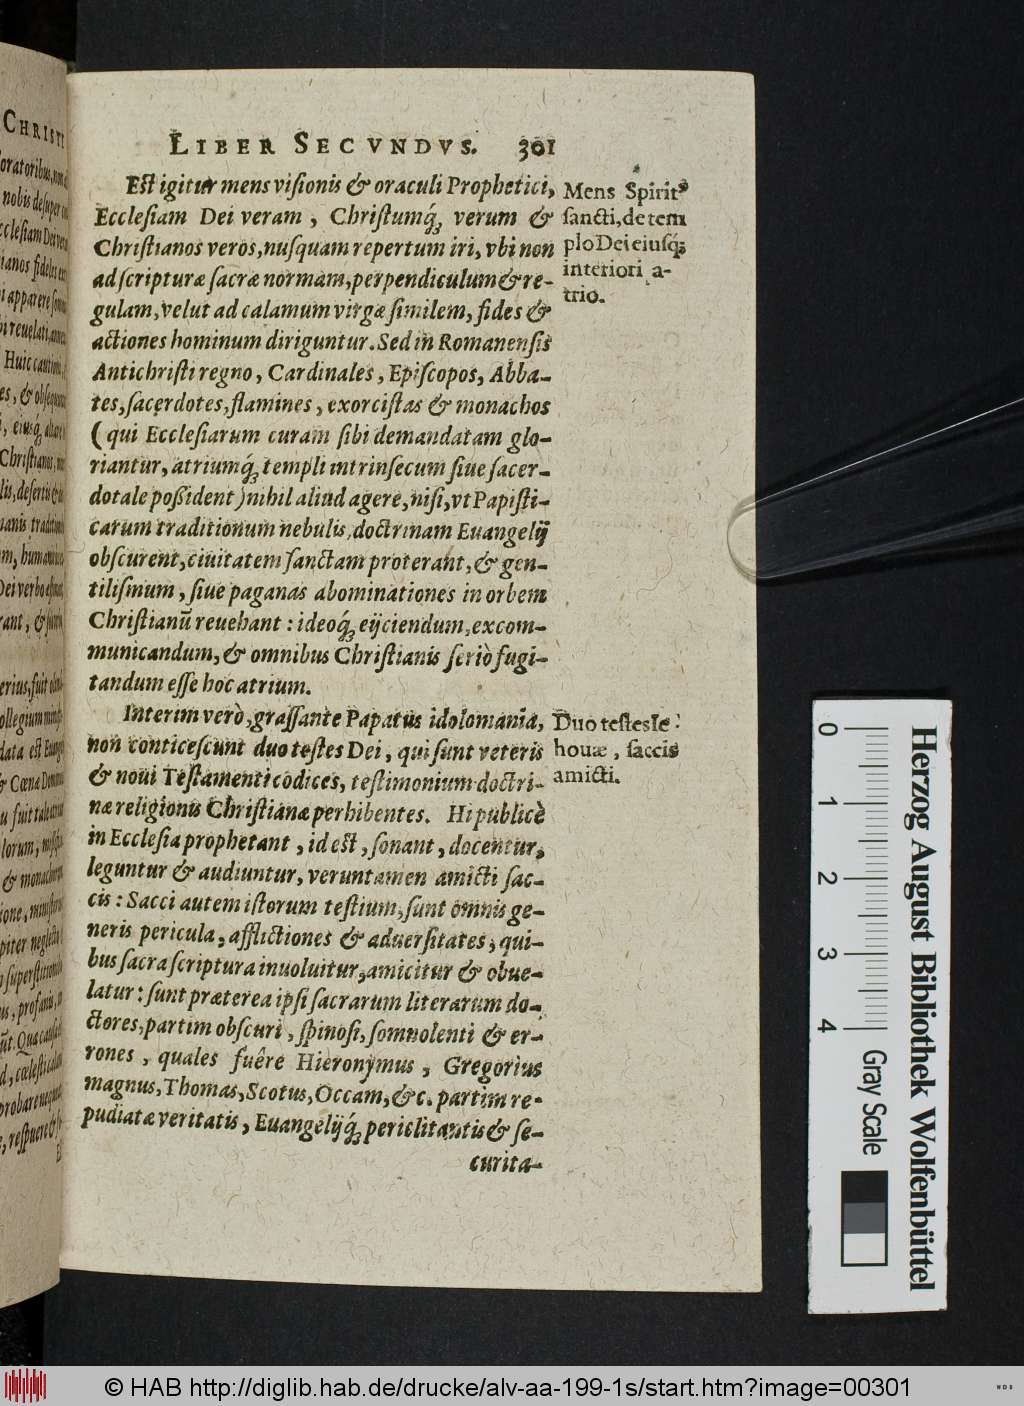 LIBER SECVNDVS. 301
Est igitur mens visionis & oraculi Prophetici,
Ecclesiam Dei veram, Christumq́; verum &
Christianos veros, nusquam repertum iri, vbi non
ad scripturæ sacræ normam, perpendiculum & re-
gulam, velut ad calamum virgæ similem, fides &
actiones hominum diriguntur. Sed in Romanensis
Antichristi regno, Cardinales, Episcopos, Abba-
tes, sacerdotes, flamines, exorcistas & monachos
(qui Ecclesiarum curam sibi demandatam glo-
riantur, atriumq́; templi intrinsecum siue sacer-
dotale poßident) nihil aliud agere, nisi, vt Papisti-
carum traditionum nebulis, doctrinam Euangelij
obscurent, ciuitatem sanctam proterant, & gen-
tilismum, siue paganas abominationes in orbem
Christianū reuehant: ideoq́; eijciendum, excom-
municandum, & omnibus Christianis seriò fugi-
tandum esse hoc atrium.
Mens Spirit⁹
sancti, de tem
plo Dei eiusq́;
interiori a-
trio.
Interim verò, grassante Papatus idolomania,
non conticescunt duo testes Dei, qui sunt veteris
& noui Testamenti codices, testimonium doctri-
næ religionis Christianæ perhibentes. Hi publicè
in Ecclesia prophetant, id est, sonant, docentur,
leguntur & audiuntur, veruntamen amicti sac-
cis: Sacci autem istorum testium, sunt omnis ge-
neris pericula, afflictiones & aduersitates, qui-
bus sacra scriptura inuoluitur, amicitur & obue-
latur: sunt præterea ipsi sacrarum literarum do-
ctores, partim obscuri, spinosi, somnolenti & er-
rones, quales fuêre Hieronymus, Gregorius
magnus, Thomas, Scotus, Occam, &c. partim re-
pudiatæ veritatis, Euangelijq́; periclitantis & se-
curita-
Duo testes Ie
houæ, saccis
amicti.
CHRISTI
0 1 2 3 4
Gray Scale
Herzog August Bibliothek Wolfenbüttel
© HAB http://diglib.hab.de/drucke/alv-aa-199-1s/start.htm?image=00301